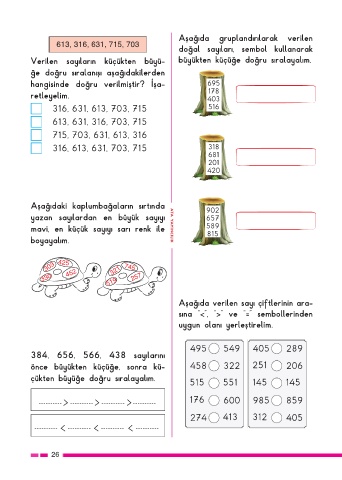 613, 316, 631, 715, 703
Verilen sayıların küçükten büyü-
ğe doğru sıralanışı aşağıdakilerden
hangisinde doğru verilmiştir? İşa-
retleyelim.
316, 631, 613, 703, 715
613, 631, 316, 703, 715
715, 703, 631, 613, 316
316, 613, 631, 703, 715
Aşağıdaki kaplumbağaların sırtında
yazan sayılardan en büyük sayıyı
mavi, en küçük sayıyı sarı renk ile
boyayalım.
384, 656, 566, 438 sayılarını
önce büyükten küçüğe, sonra kü-
çükten büyüğe doğru sıralayalım.
............ > ............ > ............ > ............
............ < ............ < ............ < ............
ATA YAYINCILIK
Aşağıda gruplandırılarak verilen
doğal sayıları, sembol kullanarak
büyükten küçüğe doğru sıralayalım.
695
178
403
516
318
681
201
420
902
657
589
815
Aşağıda verilen sayı çiftlerinin ara-
sına "<", ">" ve "=" sembollerinden
uygun olanı yerleştirelim.
495 549
458 322
515 551
176 600
274 413
405 289
251 206
145 145
985 859
312 405
26